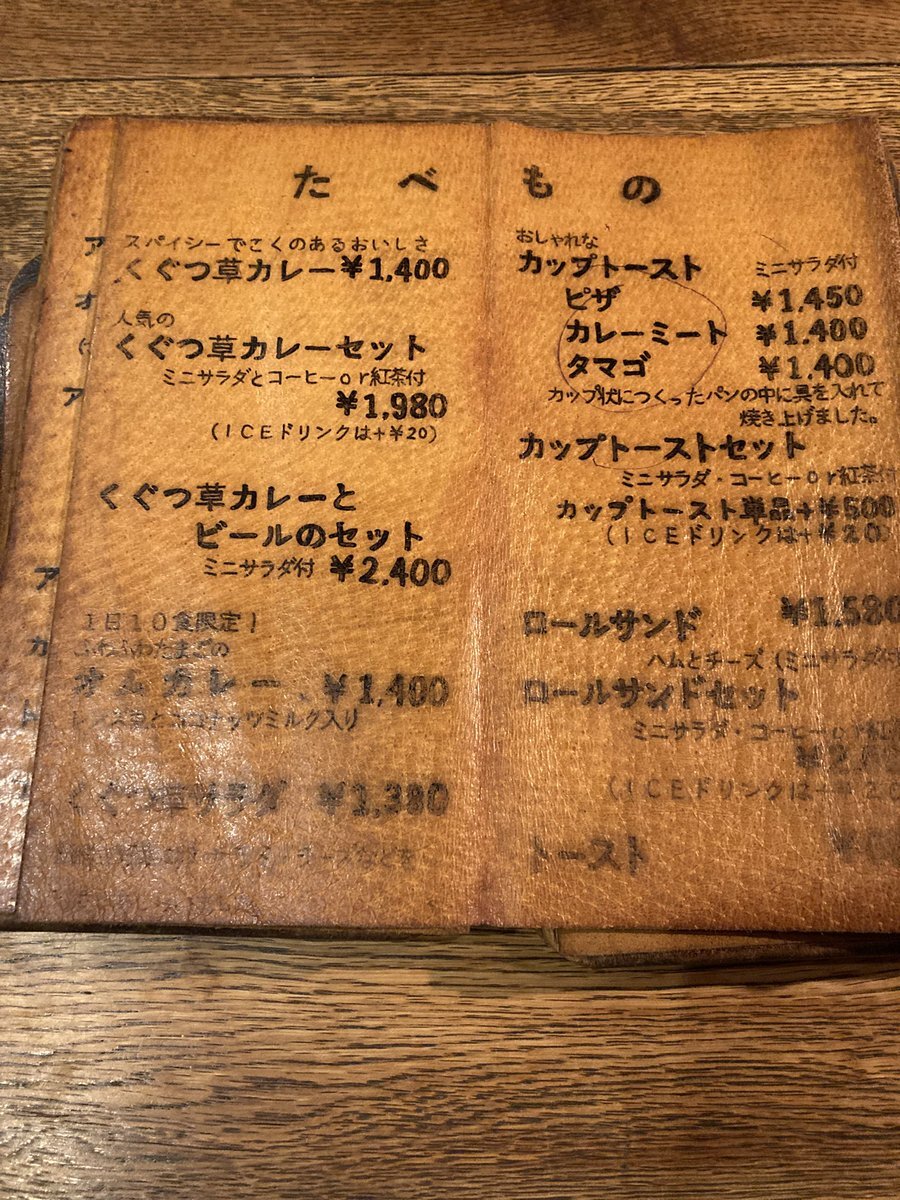 たべもの
スパイシーでこくのあるおいしさ
くぐつ草カレー ¥1,400
人気の
くぐつ草カレーセット
ミニサラダとコーヒーor紅茶付
¥1,980
(ICEドリンクは+¥20)
くぐつ草カレーと
ビールのセット
ミニサラダ付 ¥2,400
1日10食限定!
ふわふわたまごの
オムカレー ¥1,400
ココナッツミルク入り
くぐつ草サラダ ¥1,380
おしゃれな
カップトースト ミニサラダ付
ピザ ¥1,450
カレーミート ¥1,400
タマゴ ¥1,400
カップ状につくったパンの中に具を入れて
焼き上げました。
カップトーストセット
ミニサラダ・コーヒーor紅茶付
カップトースト単品+¥500
(ICEドリンクは+¥20)
ロールサンド ¥1,520
ハムとチーズ(ミニサラダ付)
ロールサンドセット
ミニサラダ・コーヒーor紅
(ICEドリンクは+¥20
トースト